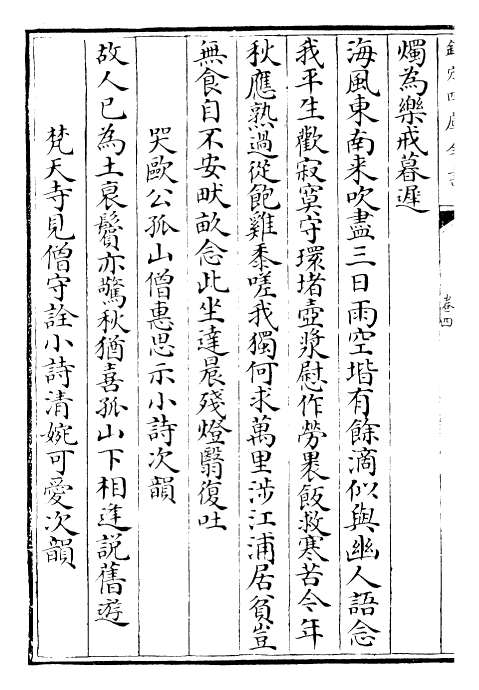 欽定四庫全書
卷四
燭為樂戒暮遲
海風東南來吹盡三日雨空堦有餘滴似與幽人語念
我平生歡寂寞守環堵壺漿慰作勞褁飯救寒苦今年
秋應熟過從飽雞黍嗟我獨何求萬里涉江浦居貧豈
無食自不安畎畝念此坐達晨殘燈翳復吐
哭歐公孤山僧惠思示小詩次韻
故人已為土衰鬢亦驚秋猶喜孤山下相逢說舊遊
梵天寺見僧守詮小詩清婉可愛次韻